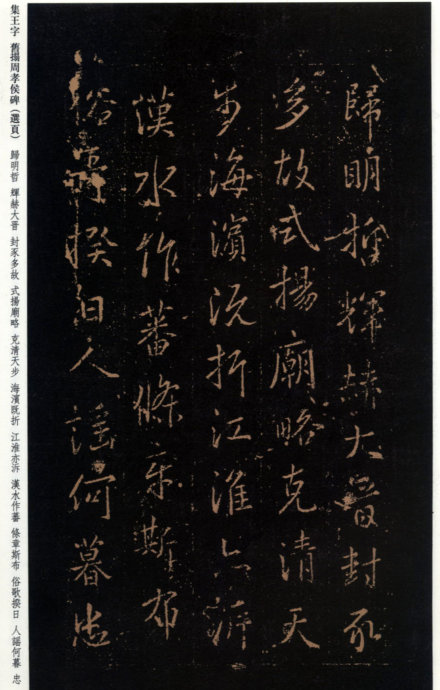 歸明哲輝赫大晉封豕
多故式揚廟略克清天
步海濱既折江淮亦泝
漢水作蕃條章斯布
俗歌揆日人謠何暮忠
集王字 舊搨周孝侯碑（選頁） 歸明哲 輝赫大晉 封豕多故 式揚廟略 克清天步 海濱既折 江淮亦泝 漢水作蕃 條章斯布 俗歌揆日 人謠何暮 忠